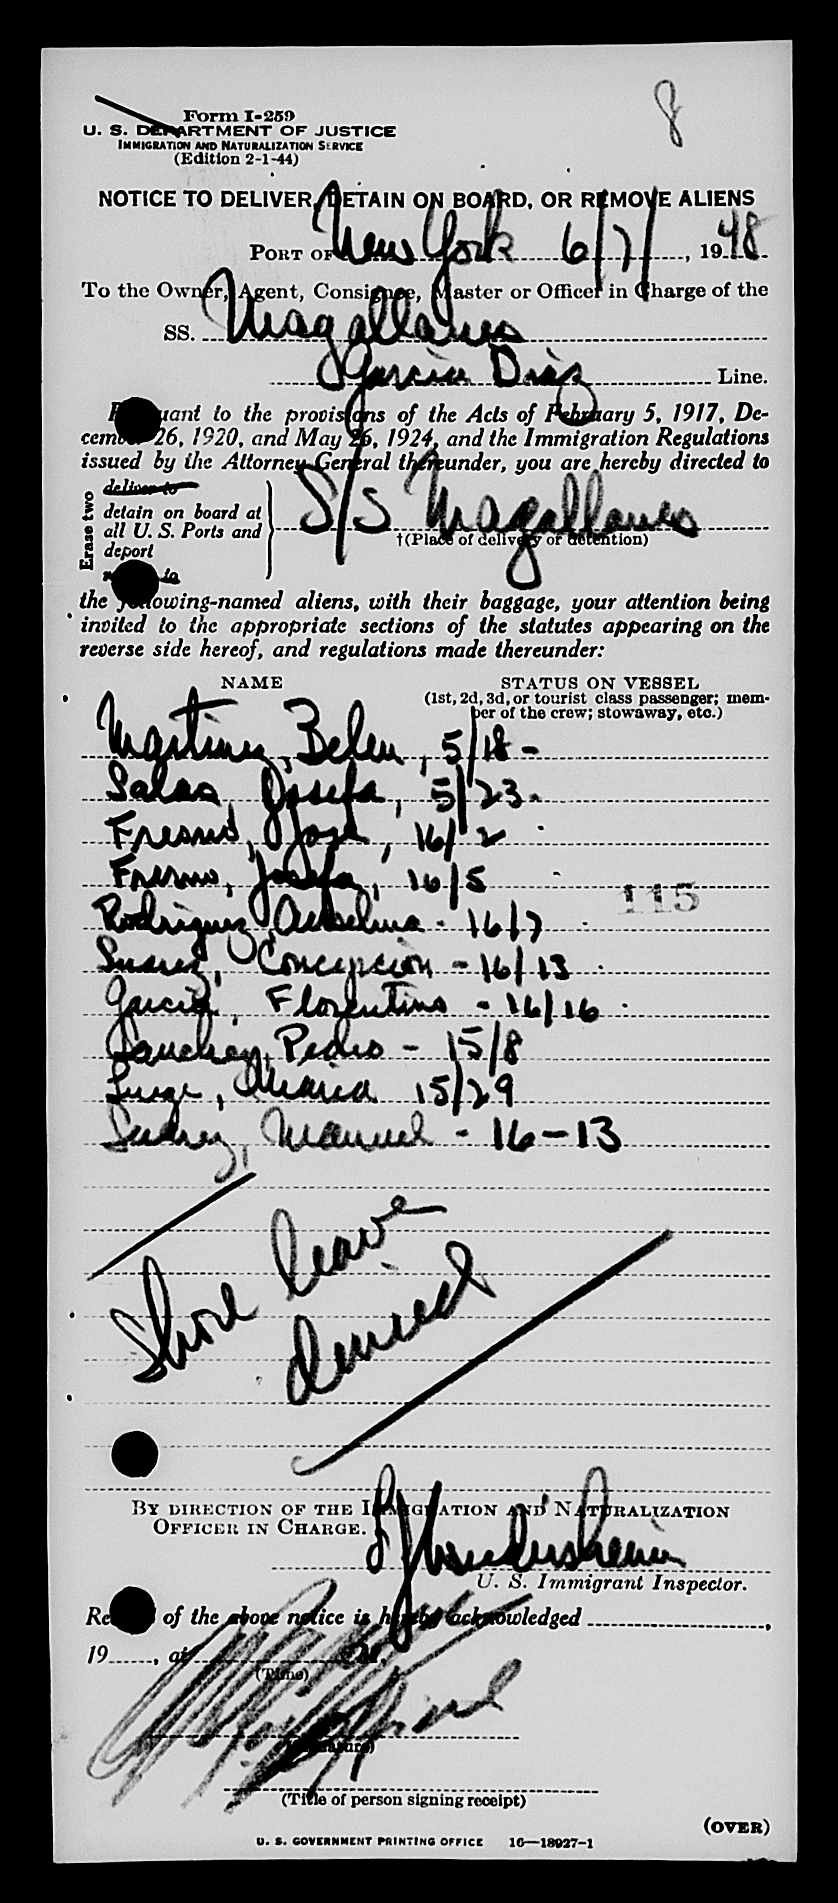 8
Form I-259
U. S. DEPARTMENT OF JUSTICE
IMMIGRATION AND NATURALIZATION SERVICE
(Edition 2-1-44)
NOTICE TO DELIVER, DETAIN ON BOARD, OR REMOVE ALIENS
PORT OF New York 6/7/, 1948
To the Owner, Agent, Consignee, Master or Officer in Charge of the
SS. Magallanes
Garcia Diaz Line.
Pursuant to the provisions of the Acts of February 5, 1917, De-
cember 26, 1920, and May 26, 1924, and the Immigration Regulations
issued by the Attorney General thereunder, you are hereby directed to
Erase two
deliver to
detain on board at
all U. S. Ports and
deport
S/S Magallanes
†(Place of delivery or detention)
the following-named aliens, with their baggage, your attention being
invited to the appropriate sections of the statutes appearing on the
reverse side hereof, and regulations made thereunder:
NAME STATUS ON VESSEL
(1st, 2d, 3d, or tourist class passenger; mem-
ber of the crew; stowaway, etc.)
Martinez, Belen, 5/18 -
Salas, Josefa, 5/23.
Fresno, Jose, 16/2
Fresno, Josefa, 16/5
115
Rodriguez, Anselma - 16/7
Suarez, Concepcion - 16/13
Garcia, Florentino - 16/16
Sanchez, Pedro - 15/8
Maria 15/29
Suarez, Manuel - 16-13
Shore leave
denied
BY DIRECTION OF THE IMMIGRATION AND NATURALIZATION
OFFICER IN CHARGE.
U. S. Immigrant Inspector.
Receipt of the above notice is hereby acknowledged ,
19 , at M.
(Time)
(Signature)
(Title of person signing receipt)
(OVER)
U. S. GOVERNMENT PRINTING OFFICE 16—18927-1